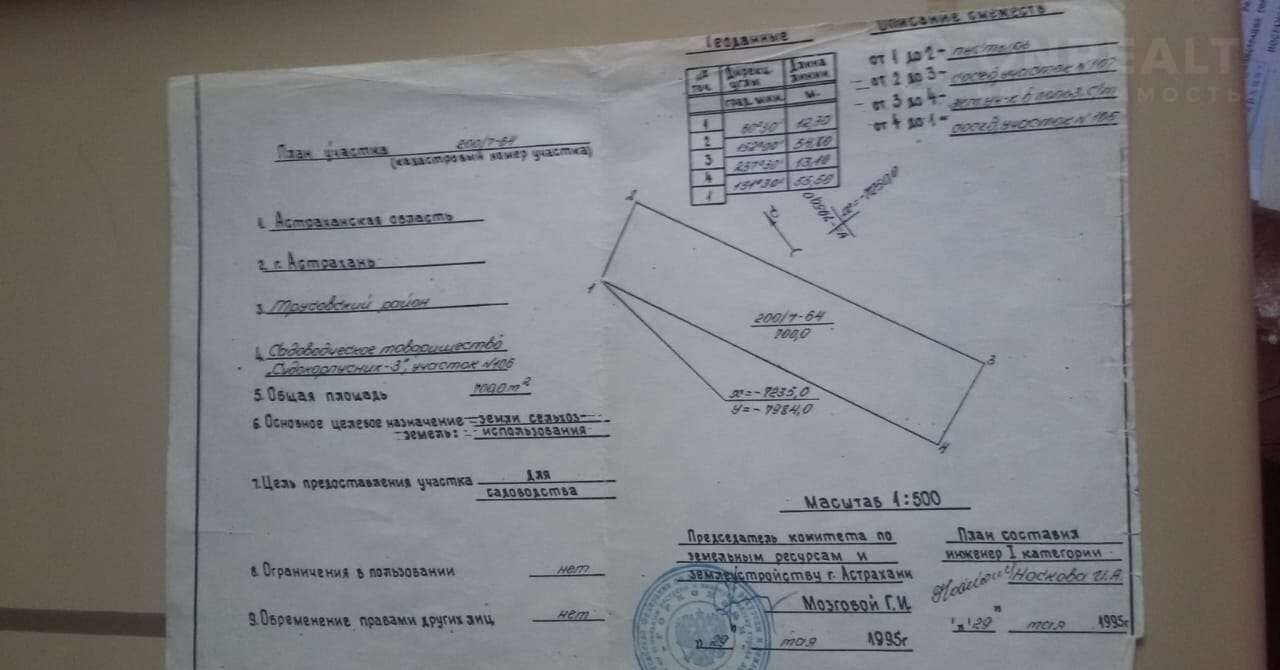 План участка 200/7-64
(кадастровый номер участка)
1. Астраханская область
2. г. Астрахань
3. Трусовский район
4. Садоводческое товарищество
„Судокорпусник-3", участок №106
5. Общая площадь 700,0 м²
6. Основное целевое назначение земли сельхоз-
земель: использования
7. Цель предоставления участка для
садоводства
8. Ограничения в пользовании нет
9. Обременение правами других лиц нет
Геоданные
№ точ. Дирекц. углы Длина линии
град. мин. м.
1
2
3
4
1
12,70
13,10
55,50
Описание смежеств
от 1 до 2 - пустырь
от 2 до 3 - сосед. участок №107
от 3 до 4 -
от 4 до 1 - сосед. участок №105
x=-7250,0
2
1
3
4
200/7-64
700,0
x=-7235,0
y=-7984,0
Масштаб 1:500
Председатель комитета по
земельным ресурсам и
землеустройству г. Астрахани
Мозговой Г.И.
"29" мая 1995г
План составил
инженер I категории
Носкова И.А.
"29" мая 1995г
ONREALT
недвижимость